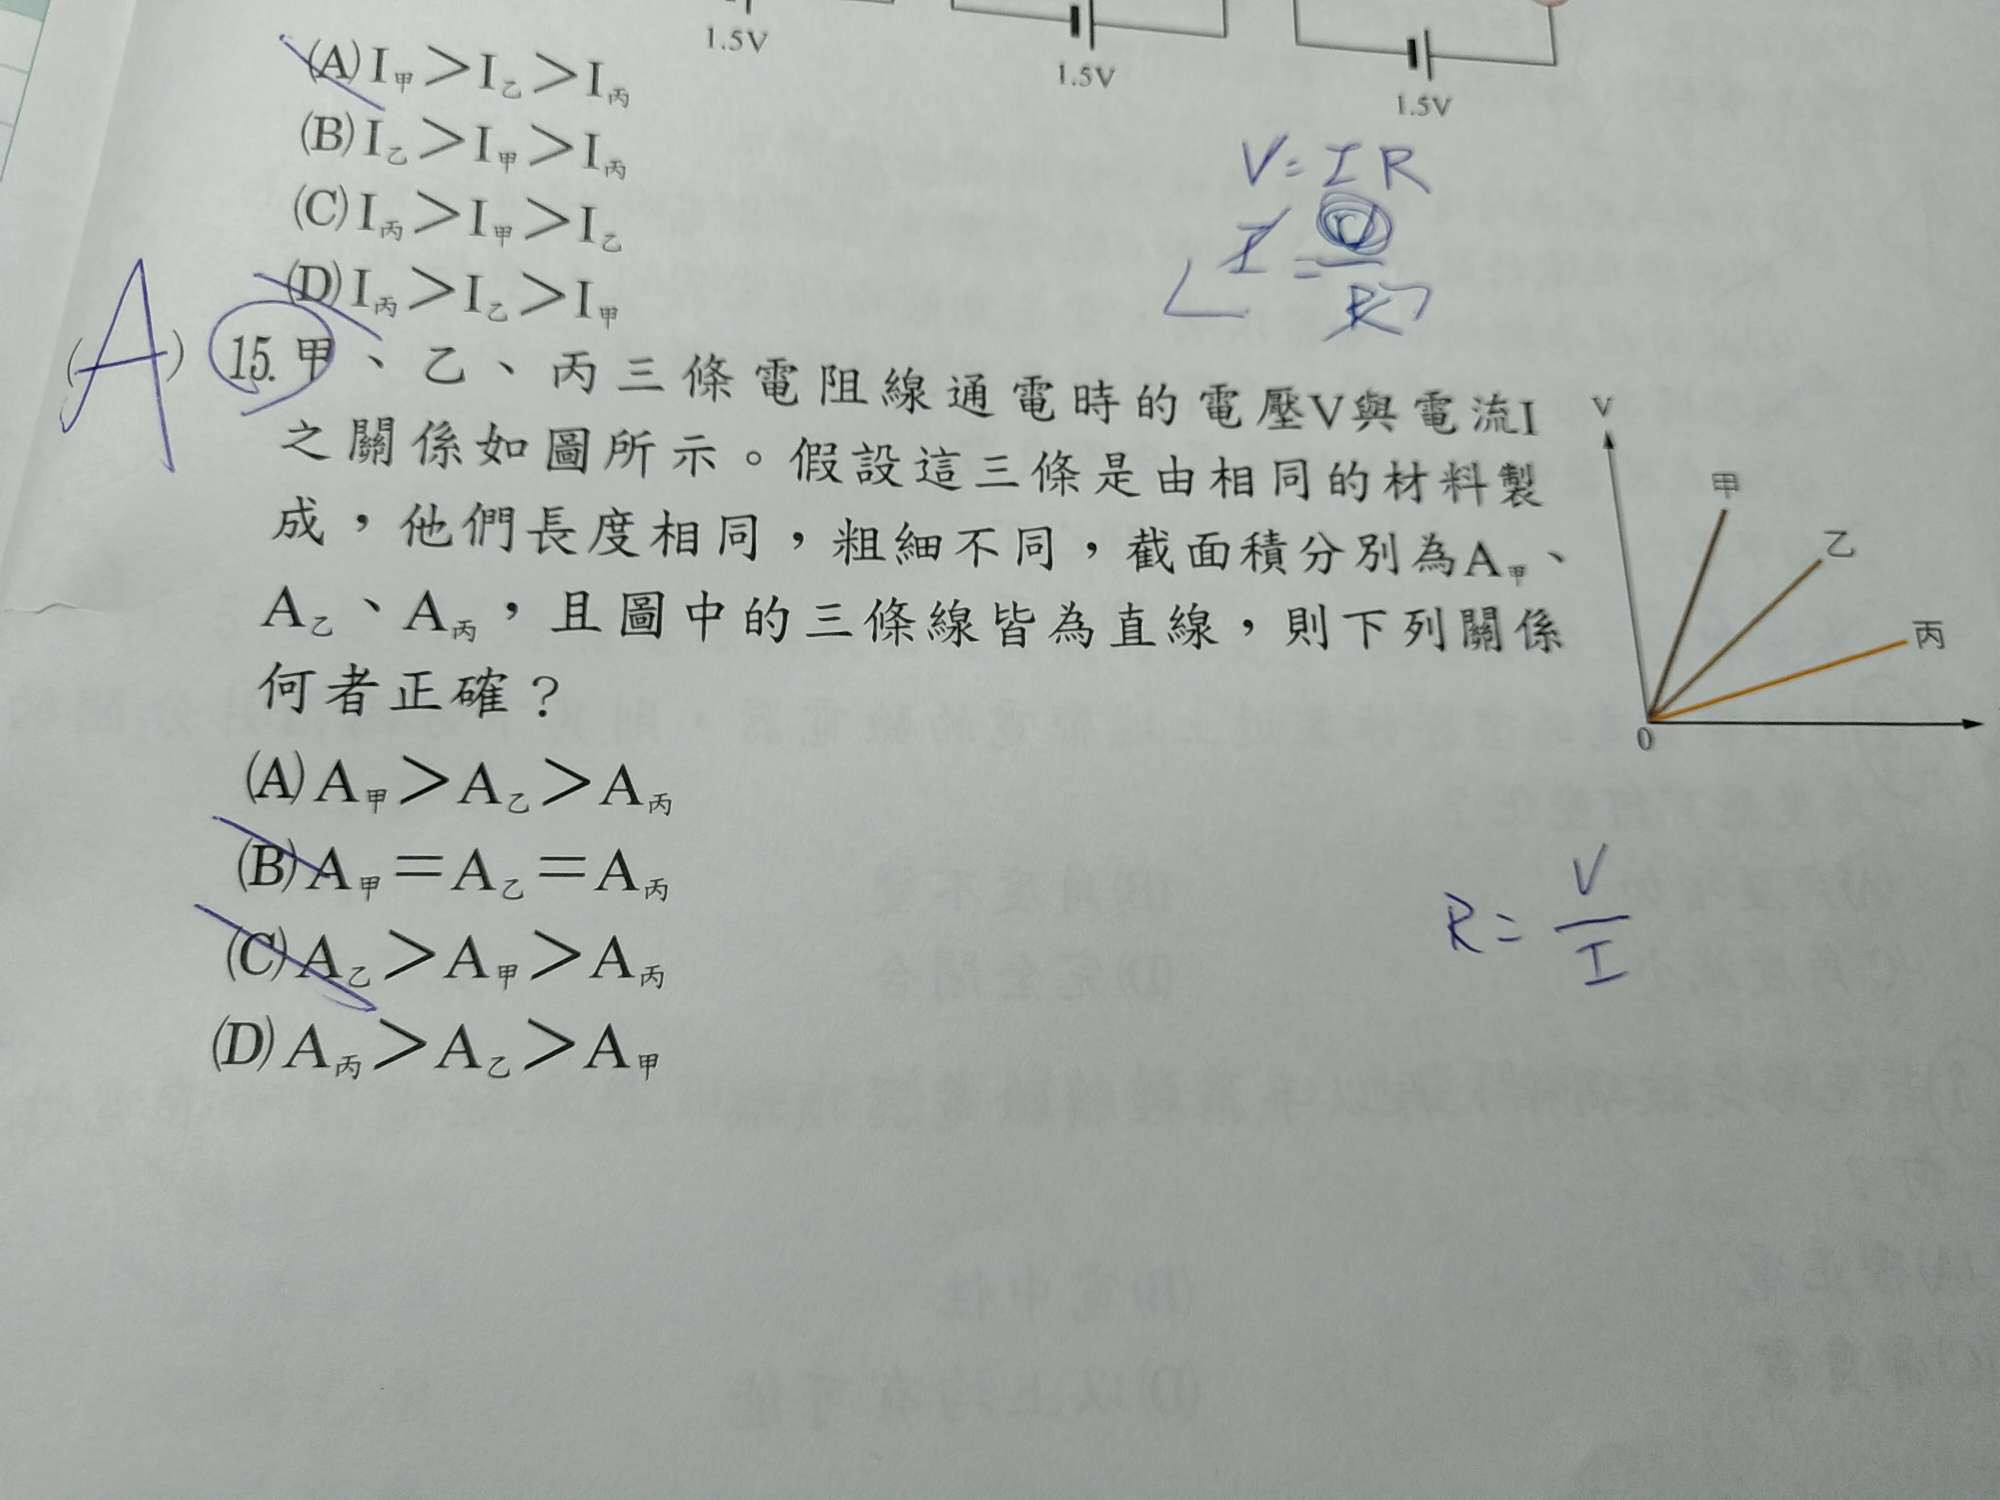 1.5V
1.5V
1.5V
(A)I甲>I乙>I丙
(B)I乙>I甲>I丙
(C)I丙>I甲>I乙
(D)I丙>I乙>I甲
V=IR
I=
R
(A) 15.甲、乙、丙三條電阻線通電時的電壓V與電流I
之關係如圖所示。假設這三條是由相同的材料製
成,他們長度相同,粗細不同,截面積分別為A甲、
A乙、A丙,且圖中的三條線皆為直線,則下列關係
何者正確?
V
甲
乙
丙
0
(A)A甲>A乙>A丙
(B)A甲=A乙=A丙
(C)A乙>A甲>A丙
(D)A丙>A乙>A甲
R=V/I